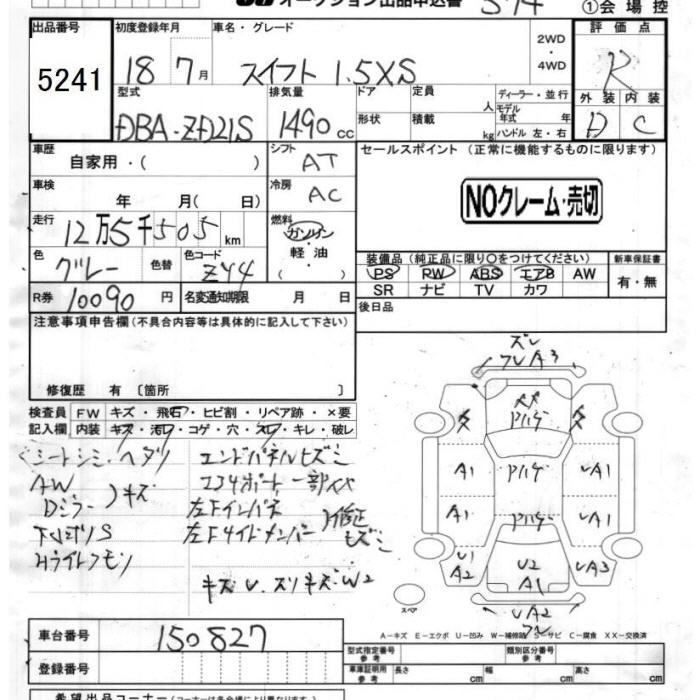 オークション出品申込書
①会場控
出品番号 初度登録年月 車名・グレード 2WD・4WD 評価点
5241 18 7月 スイフト 1.5XS R
型式 排気量 ドア 定員 人 ディーラー・並行 外装 内装
DBA-ZD21S 1490 cc 形状 積載 kg モデル年式 年 ハンドル 左・右 D C
車歴 自家用・( ) シフト AT セールスポイント (正常に機能するものに限ります)
車検 年 月( 日) 冷房 AC NOクレーム・売切
走行 12万5千505km 燃料 ガソリン
軽油
( ・ )
色 グレー 色替 色コード ZY4 装備品 (純正品に限り〇をつけてください) 新車保証書
PS PW ABS エアB AW 有・無
SR ナビ TV カワ
R券 10090円 名変通知期限 月 日 後日品
注意事項申告欄(不具合内容等は具体的に記入して下さい)
修復歴 有 〔箇所 〕
検査員 FW キズ・飛石・ヒビ割・リペア跡・×要
記入欄 内装 キズ・汚れ・コゲ・穴・スレ・キレ・破レ
シートシミ・ヘタリ エンドパネルヒズミ
AW コアサポート一部
Dミラー )キズ 左Fインパネ
左Fサイドメンバー )修正ヒズミ
キズU.スリキズ.W2
ズレ
フレA3
XX
Pハゲ
X X
A1 Pハゲ UA1
A1 Pハゲ UA1
U1
A2 U2
A1 UA3
UA2
フレ
スペア
A-キズ E-エクボ U-凹み W-補修跡 S-サビ C-腐食 XX-交換済
車台番号 150827 型式指定番号 参考 類別区分番号 参考
登録番号 車庫証明用 参考 長さ cm 幅 cm 高さ cm
希望出品コーナー